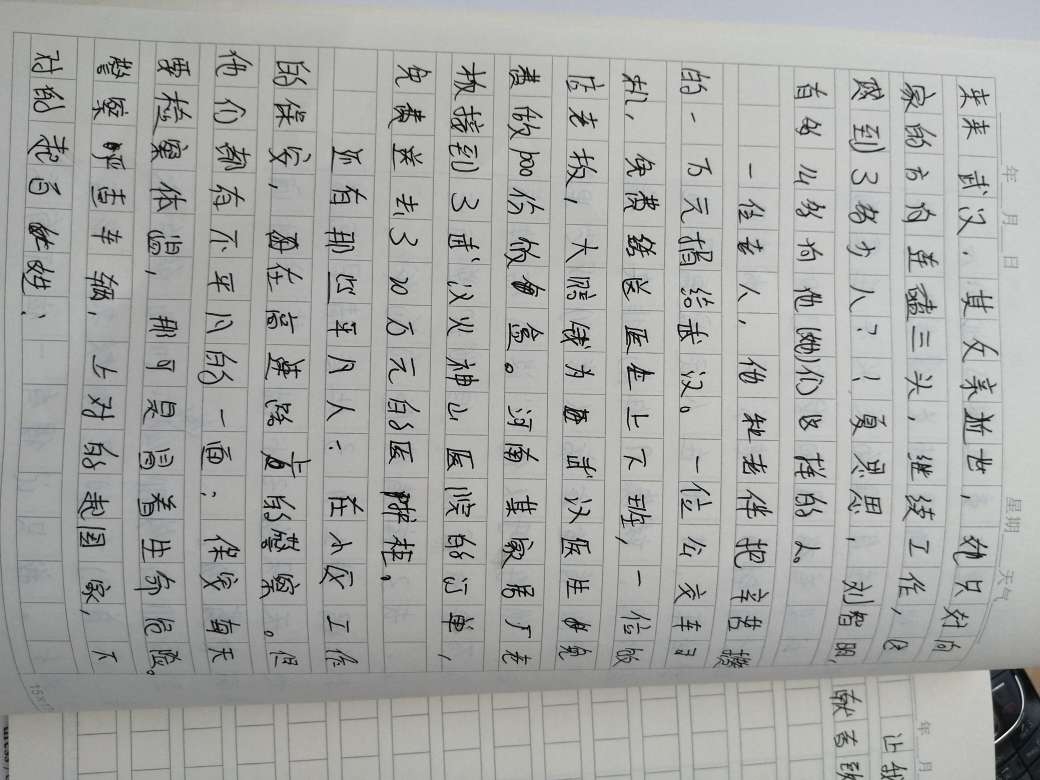 年 月 日 星期 天气
来来武汉.其父亲逝世,她只好向
家的方向连磕三头,继续工作,
感到了努力人?!夏思思,刘智明,
有多么多向他(她)们这样的人。
一位老人,他和老伴把辛苦攒
的一万元捐给武汉。一位公交车司
机,免费给医生上下班,一位饭
店老板,大 为武汉医生免
费做 份饭盒。河南某家居厂老
板接到了武汉火神山医院的订单,
免费送去了 万元的医护柜。
还有那些平凡人:在小区工作
的保安,在高速路的警察。但
他们都有不平凡的一面:保安每天
要检察体温,那可是冒着生命危险。
警察严查车辆,上对的起国家,下
对的起百姓;
年 月
让我
献者